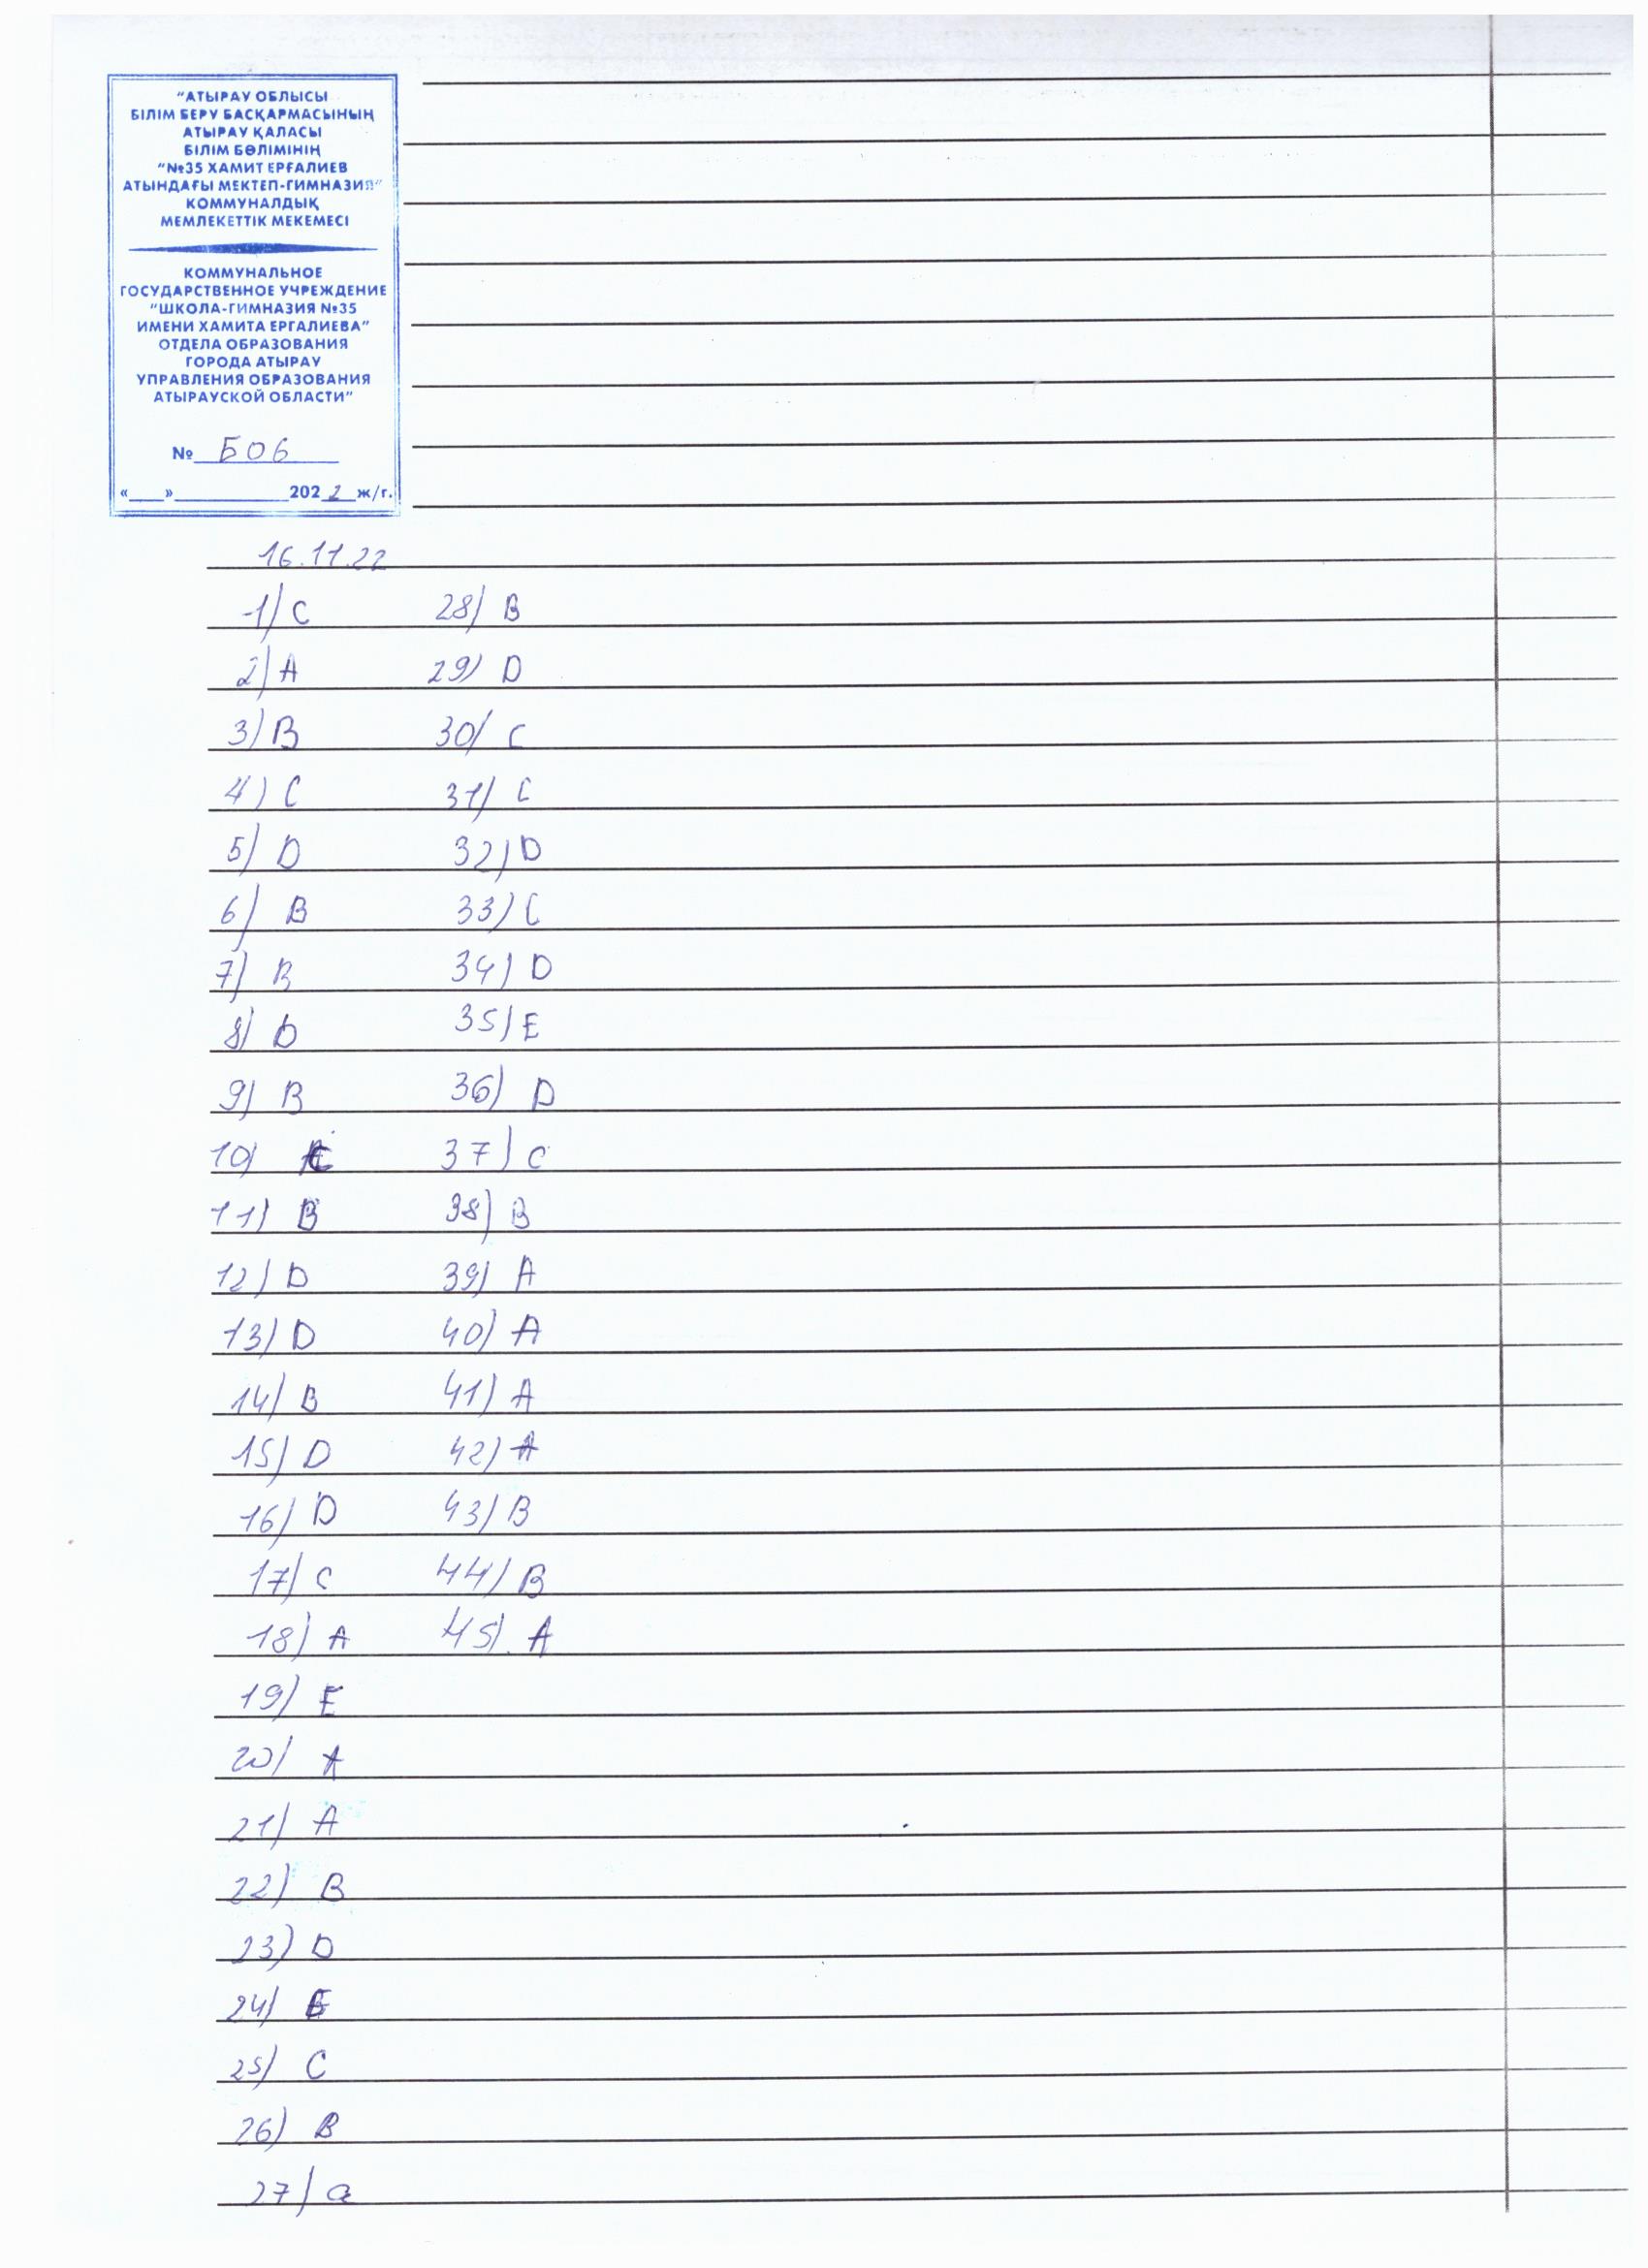 "АТЫРАУ ОБЛЫСЫ
БІЛІМ БЕРУ БАСҚАРМАСЫНЫҢ
АТЫРАУ ҚАЛАСЫ
БІЛІМ БӨЛІМІНІҢ
"№35 ХАМИТ ЕРҒАЛИЕВ
АТЫНДАҒЫ МЕКТЕП-ГИМНАЗИЯ"
КОММУНАЛДЫҚ
МЕМЛЕКЕТТІК МЕКЕМЕСІ
КОММУНАЛЬНОЕ
ГОСУДАРСТВЕННОЕ УЧРЕЖДЕНИЕ
"ШКОЛА-ГИМНАЗИЯ №35
ИМЕНИ ХАМИТА ЕРГАЛИЕВА"
ОТДЕЛА ОБРАЗОВАНИЯ
ГОРОДА АТЫРАУ
УПРАВЛЕНИЯ ОБРАЗОВАНИЯ
АТЫРАУСКОЙ ОБЛАСТИ"
№ Б06
«___»__________2022 ж/г.
16.11.22
1) C 28) B
2) A 29) D
3) B 30) C
4) C 31) C
5) D 32) D
6) B 33) C
7) B 34) D
8) D 35) E
9) B 36) D
10) 37) C
11) B 38) B
12) D 39) A
13) D 40) A
14) B 41) A
15) D 42) A
16) D 43) B
17) C 44) B
18) A 45). A
19) E
20) A
21) A
22) B
23) D
24)
25) C
26) B
27) a